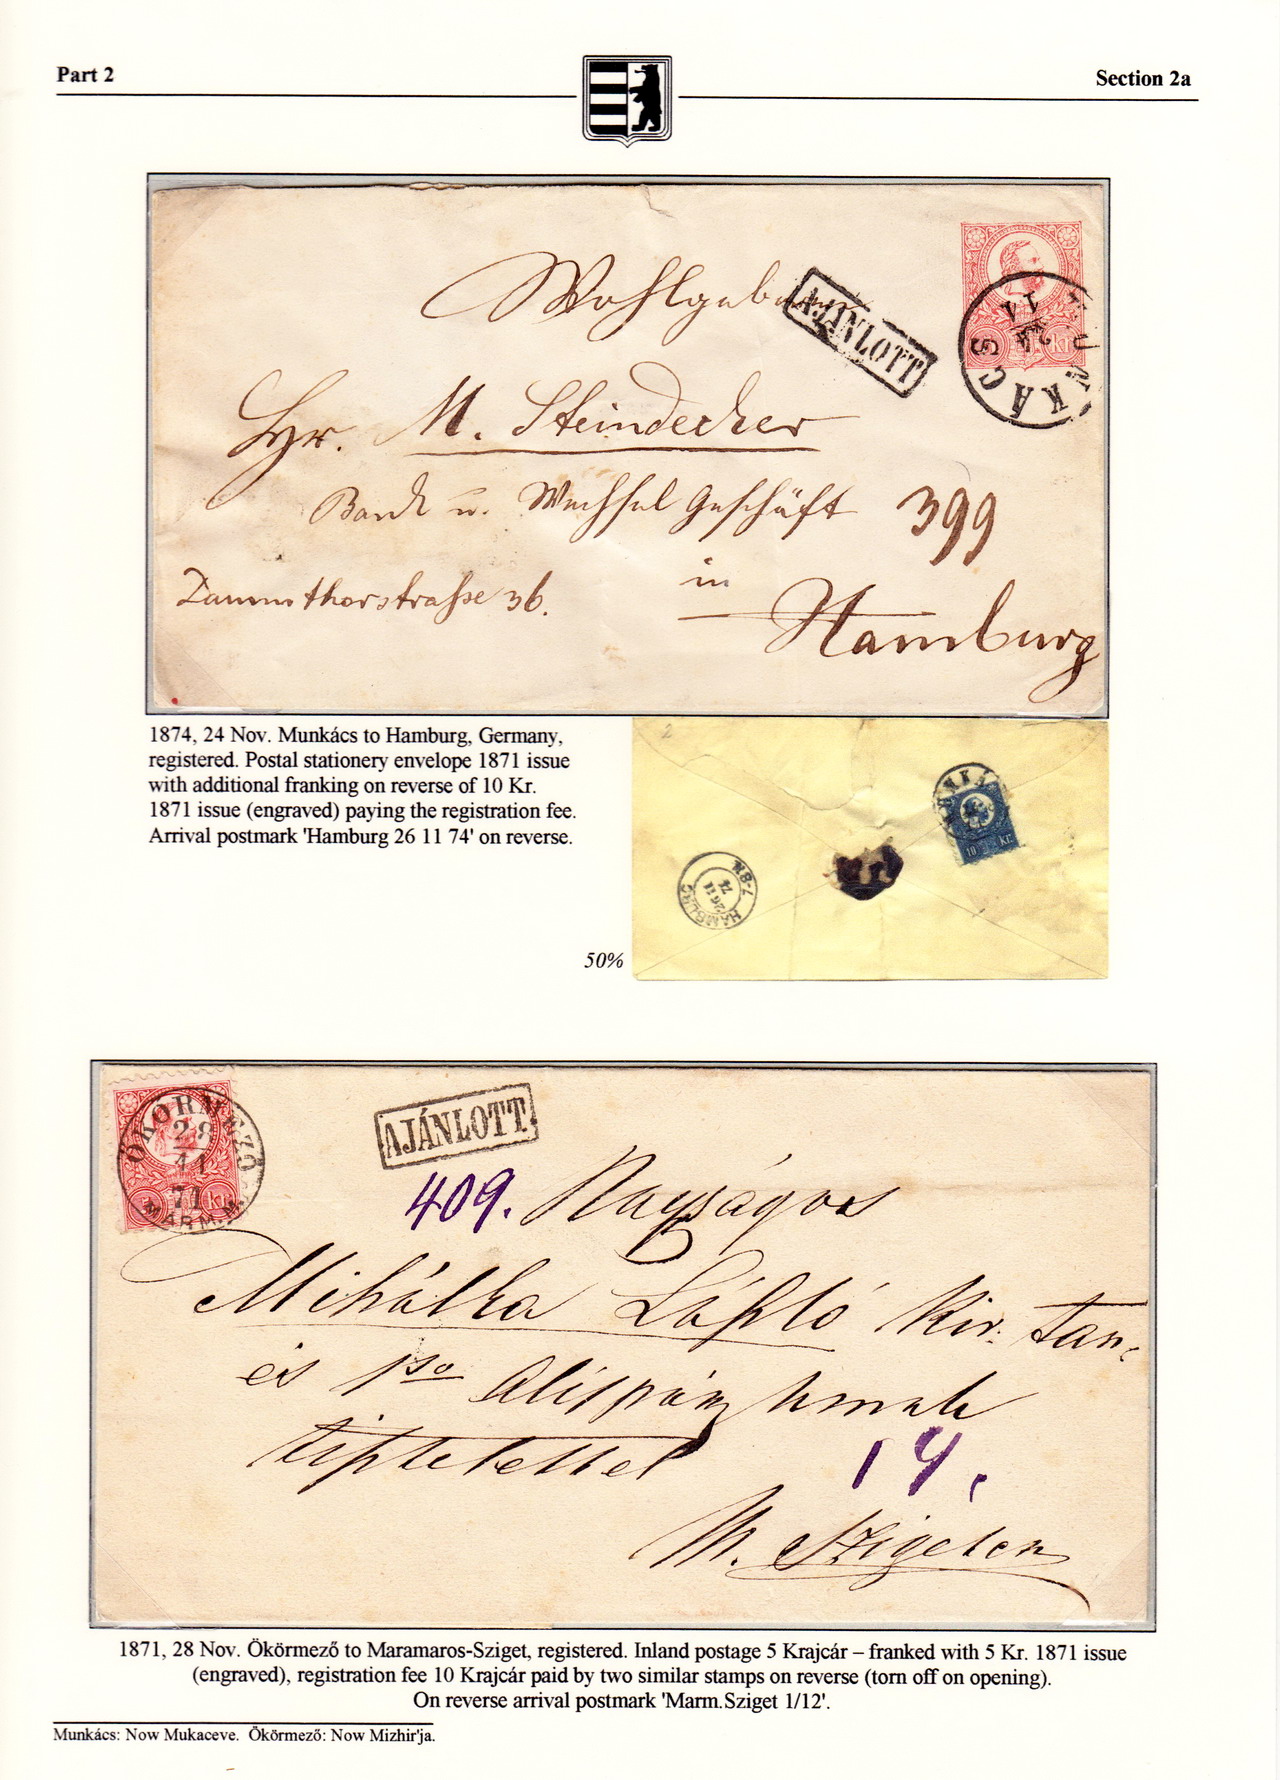 Part 2
Section 2a
Wohlgeboren
AJÁNLOTT
MUNKÁCS
24
11
kr
Hr. M. Steindecker
Bank u. Wechsel Geschäft 399
in
Dammthorstraße 36.
Hamburg
1874, 24 Nov. Munkács to Hamburg, Germany,
registered. Postal stationery envelope 1871 issue
with additional franking on reverse of 10 Kr.
1871 issue (engraved) paying the registration fee.
Arrival postmark 'Hamburg 26 11 74' on reverse.
MUNKÁ
10 Kr.
HAMBURG
26 11
74
7-8N.
50%
ÖKÖRMEZŐ
28
11
71
MARM. M.
kr
AJÁNLOTT
409. Nagyságos
Mihálka László Kir. Tan.
és 1ső Alispán úrnak
tisztelettel
14.
M. Szigeten
1871, 28 Nov. Ökörmező to Maramaros-Sziget, registered. Inland postage 5 Krajcár – franked with 5 Kr. 1871 issue
(engraved), registration fee 10 Krajcár paid by two similar stamps on reverse (torn off on opening).
On reverse arrival postmark 'Marm.Sziget 1/12'.
Munkács: Now Mukaceve. Ökörmező: Now Mizhir'ja.